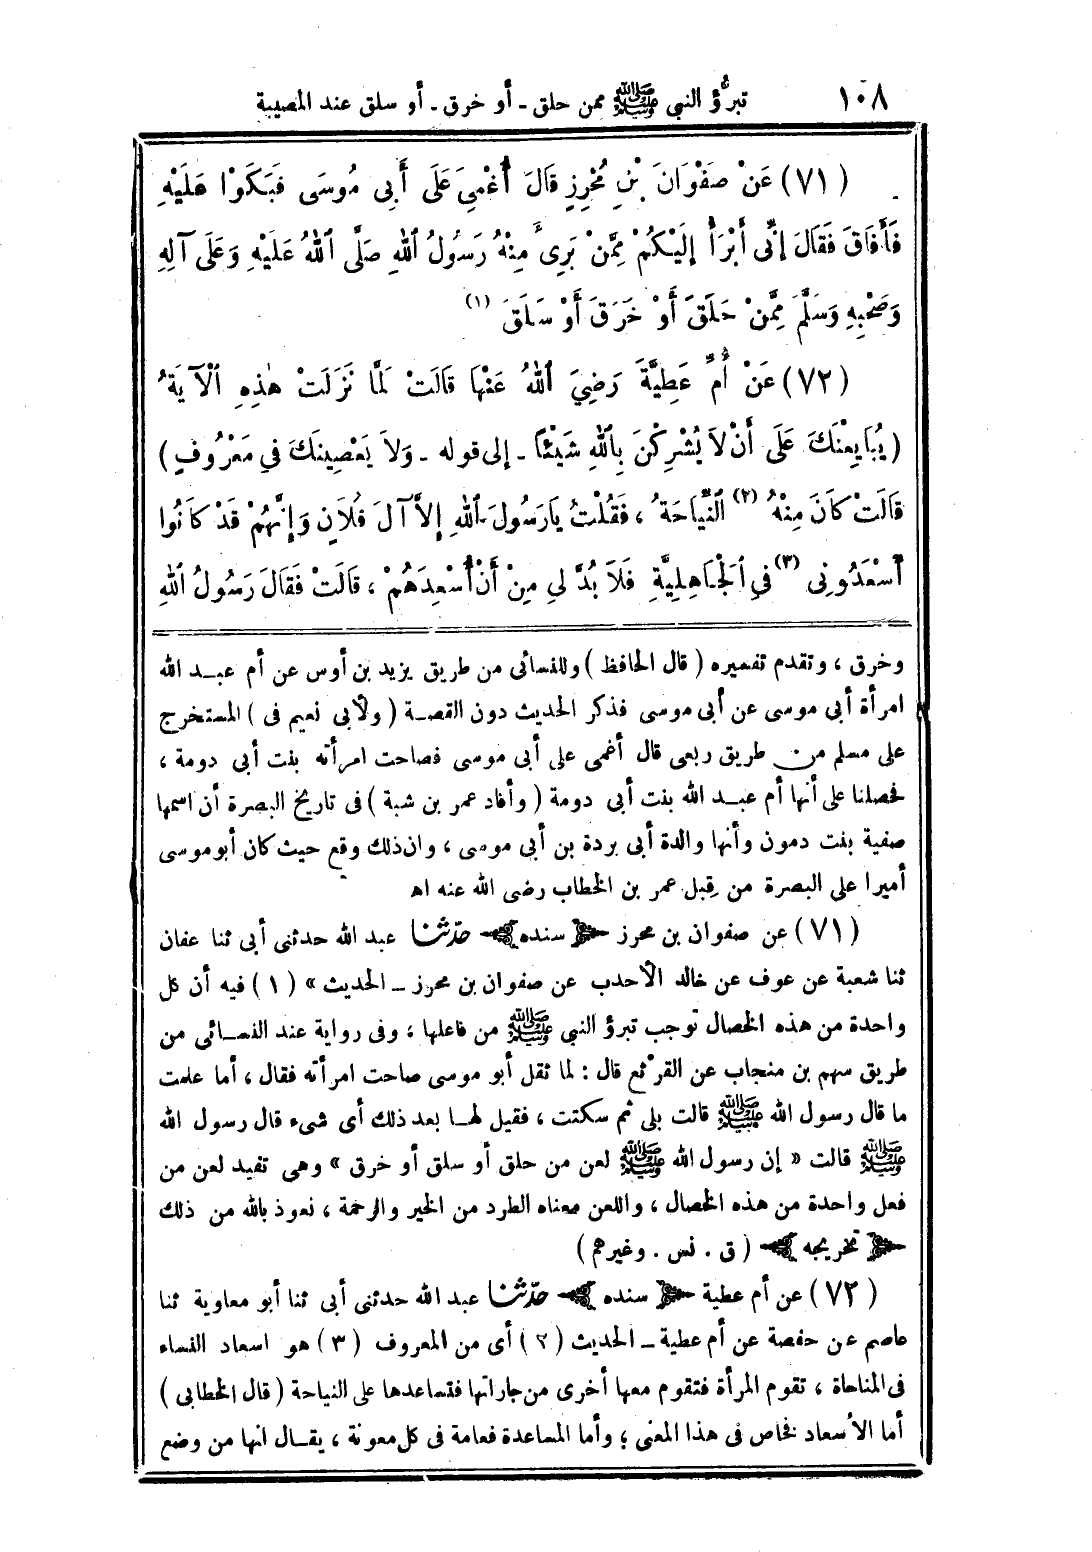 ١٠٨ تبرُّؤ النبي ﷺ ممن حلق ـ أو خرق ـ أو سلق عند المصيبة
(٧١) عَنْ صَفْوَانَ بْنِ مُحْرِزٍ قَالَ أُغْمِيَ عَلَى أَبِي مُوسَى فَبَكَوْا عَلَيْهِ
فَأَفَاقَ فَقَالَ إِنِّي أَبْرَأُ إِلَيْكُمْ مِمَّنْ بَرِئَ مِنْهُ رَسُولُ اللهِ صَلَّى اللهُ عَلَيْهِ وَعَلَى آلِهِ
وَصَحْبِهِ وَسَلَّمَ مِمَّنْ حَلَقَ أَوْ خَرَقَ أَوْ سَلَقَ (١)
(٧٢) عَنْ أُمِّ عَطِيَّةَ رَضِيَ اللهُ عَنْهَا قَالَتْ لَمَّا نَزَلَتْ هٰذِهِ الْآيَةُ
(يُبَايِعْنَكَ عَلَى أَنْ لاَ يُشْرِكْنَ بِاللهِ شَيْئًا ـ إلى قوله ـ وَلاَ يَعْصِينَكَ فِي مَعْرُوفٍ)
قَالَتْ كَانَ مِنْهُ (٢) النِّيَاحَةُ ، فَقُلْتُ يَا رَسُولَ اللهِ إِلاَّ آلَ فُلاَنٍ وَإِنَّهُمْ قَدْ كَانُوا
أَسْعَدُونِي (٣) فِي الْجَاهِلِيَّةِ فَلاَ بُدَّ لِي مِنْ أَنْ أُسْعِدَهُمْ ، قَالَتْ فَقَالَ رَسُولُ اللهِ
وخرق ، وتقدم تفسيره (قال الحافظ) وللنسائى من طريق يزيد بن أوس عن أم عبد الله
امرأة أبى موسى عن أبى موسى فذكر الحديث دون القصة (ولأبى نعيم فى) المستخرج
على مسلم من طريق ربعى قال أغمى على أبى موسى فصاحت امرأته بنت أبى دومة ،
فحصلنا على أنها أم عبد الله بنت أبى دومة (وأفاد عمر بن شبة) فى تاريخ البصرة أن اسمها
صفية بنت دمون وأنها والدة أبى بردة بن أبى موسى ، وان ذلك وقع حيث كان أبو موسى
أميرا على البصرة من قِبل عمر بن الخطاب رضى الله عنه اه
(٧١) عن صفوان بن محرز ﴿سنده﴾ حدّثنا عبد الله حدثنى أبى ثنا عفان
ثنا شعبة عن عوف عن خالد الأحدب عن صفوان بن محرز ــ الحديث » (١) فيه أن كل
واحدة من هذه الخصال توجب تبرؤ النبي ﷺ من فاعلها ، وفى رواية عند النسائى من
طريق سهم بن منجاب عن القرثع قال : لما ثقل أبو موسى صاحت امرأته فقال ، أما علمت
ما قال رسول الله ﷺ قالت بلى ثم سكتت ، فقيل لها بعد ذلك أى شىء قال رسول الله
ﷺ قالت « إن رسول الله ﷺ لعن من حلق أو سلق أو خرق » وهى تفيد لعن من
فعل واحدة من هذه الخصال ، واللعن معناه الطرد من الخير والرحمة ، نعوذ بالله من ذلك
﴿تخريجه﴾ (ق . نس . وغيرهم)
(٧٢) عن أم عطية ﴿سنده﴾ حدّثنا عبد الله حدثنى أبى ثنا أبو معاوية ثنا
عاصم عن حفصة عن أم عطية ــ الحديث (٢) أى من المعروف (٣) هو اسعاد النساء
فى المناحاة ، تقوم المرأة فتقوم معها أخرى من جاراتها فتساعدها على النياحة (قال الخطابى)
أما الأسعاد فخاص فى هذا المعنى ؛ وأما المساعدة فعامة فى كل معونة ، يقال انها من وضع